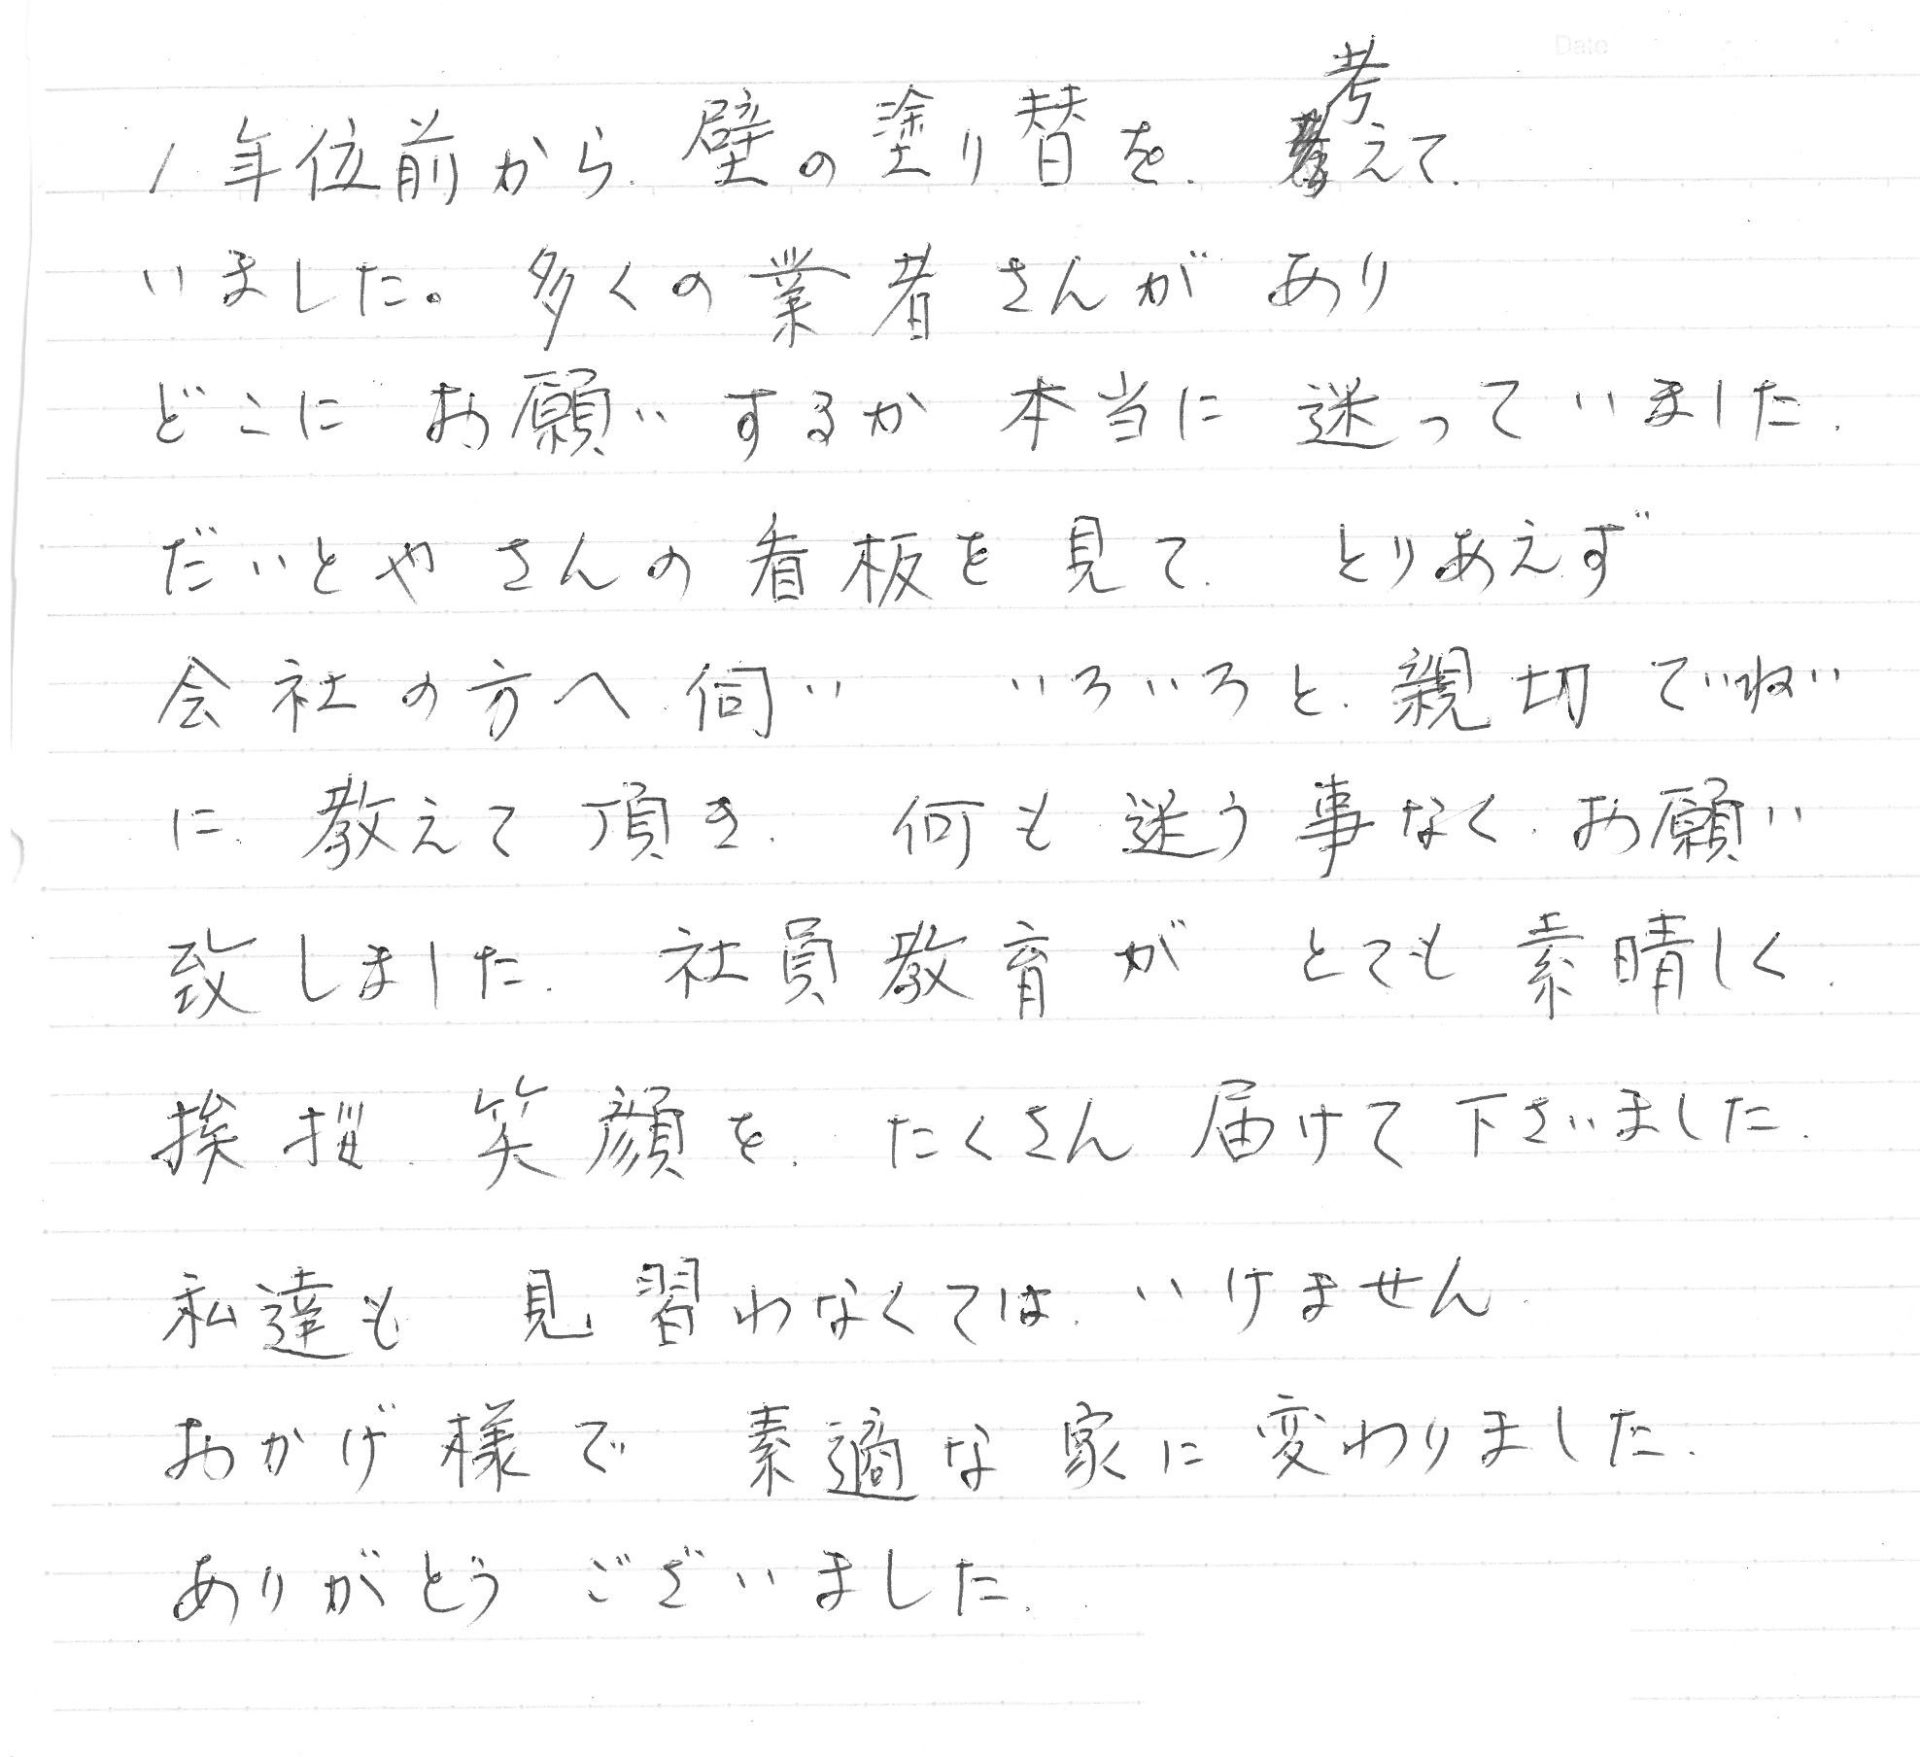 Date
1年位前から、壁の塗り替を、考えて、
いました。多くの業者さんがあり
どこにお願いするか本当に迷っていました。
だいとやさんの看板を見て、とりあえず
会社の方へ伺い いろいろと、親切でいねい
に、教えて頂き、何も迷う事なく、お願い
致しました。社員教育がとても素晴しく、
挨拶、笑顔を、たくさん届けて下さいました。
私達も見習わなくては、いけません。
おかげ様で素適な家に変わりました。
ありがとうございました。